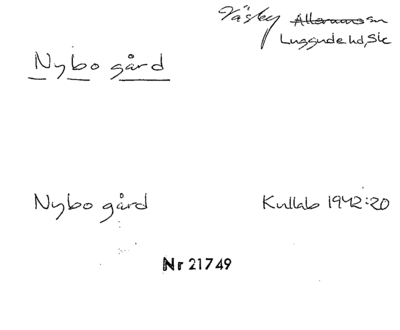 Väsby Allerums sn
Luggude hd, Sk
Nybo gård
Nybo gård Kullab 1942:20
Nr 21749